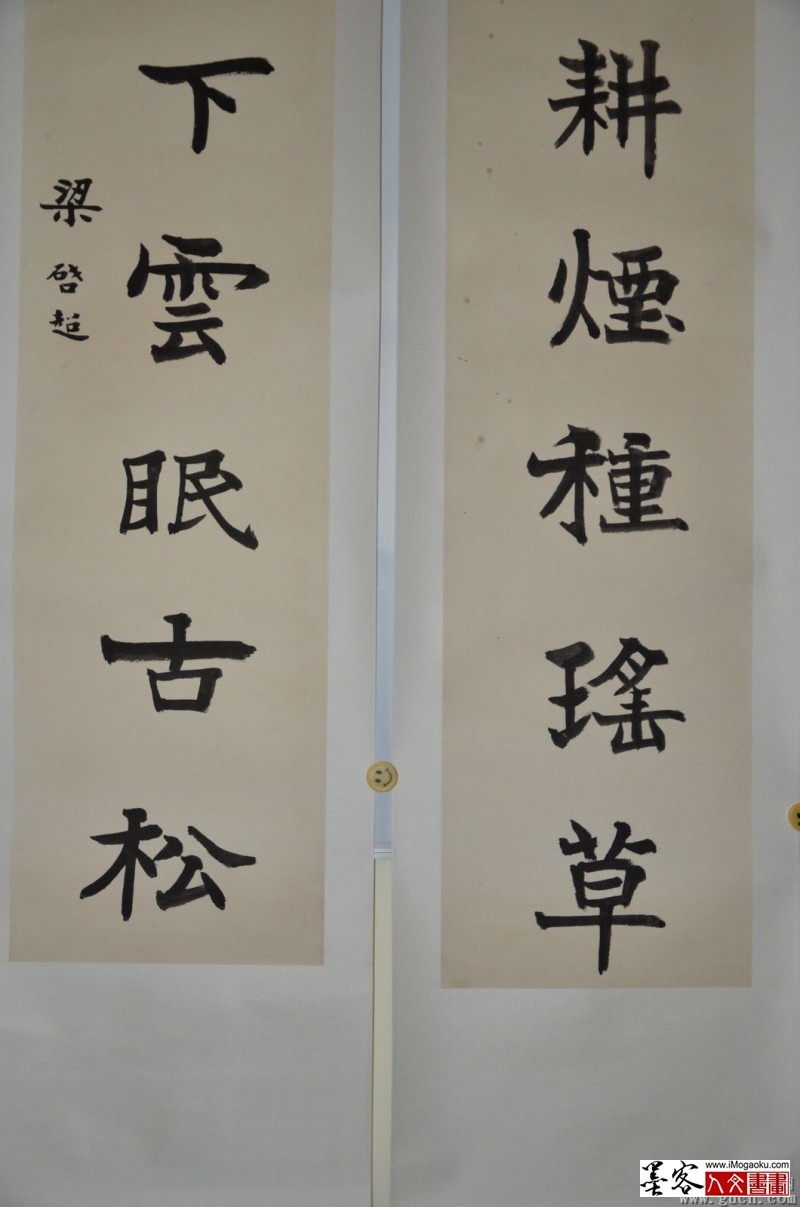 耕煙種瑤草
下雲眠古松
梁啓超
墨客
www.iMogaoku.com
人文書畫